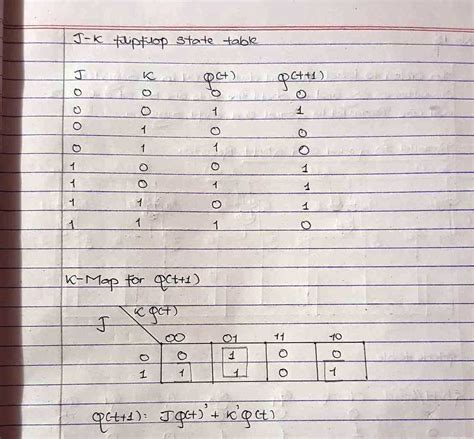 J-K flipflop state table
J K Q(t) Q(t+1)
0 0 0 0
0 0 1 1
0 1 0 0
0 1 1 0
1 0 0 1
1 0 1 1
1 1 0 1
1 1 1 0
K-Map for Q(t+1)
K Q(t)
J
00 01 11 10
0 0 1 0 0
1 1 1 0 1
Q(t+1): JQ(t)' + K'Q(t)